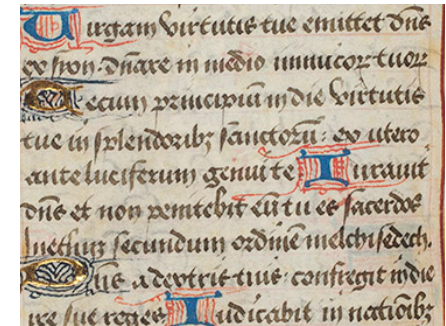 Uirgam virtutis tue emittet dn̄s
ex syon. dn̄are in medio inimicoꝝ tuoꝝ
Tecum principiū in die virtutis
tue in splendoribꝫ sanctorū: ex utero
ante luciferum genui te Iurauit
dn̄s et non penitebit eū tu es sacerdos
secundum ordinē melchisedech.
Dn̄s a dextris tuis: confregit in die
ire sue reges Iudicabit in nationibꝫ